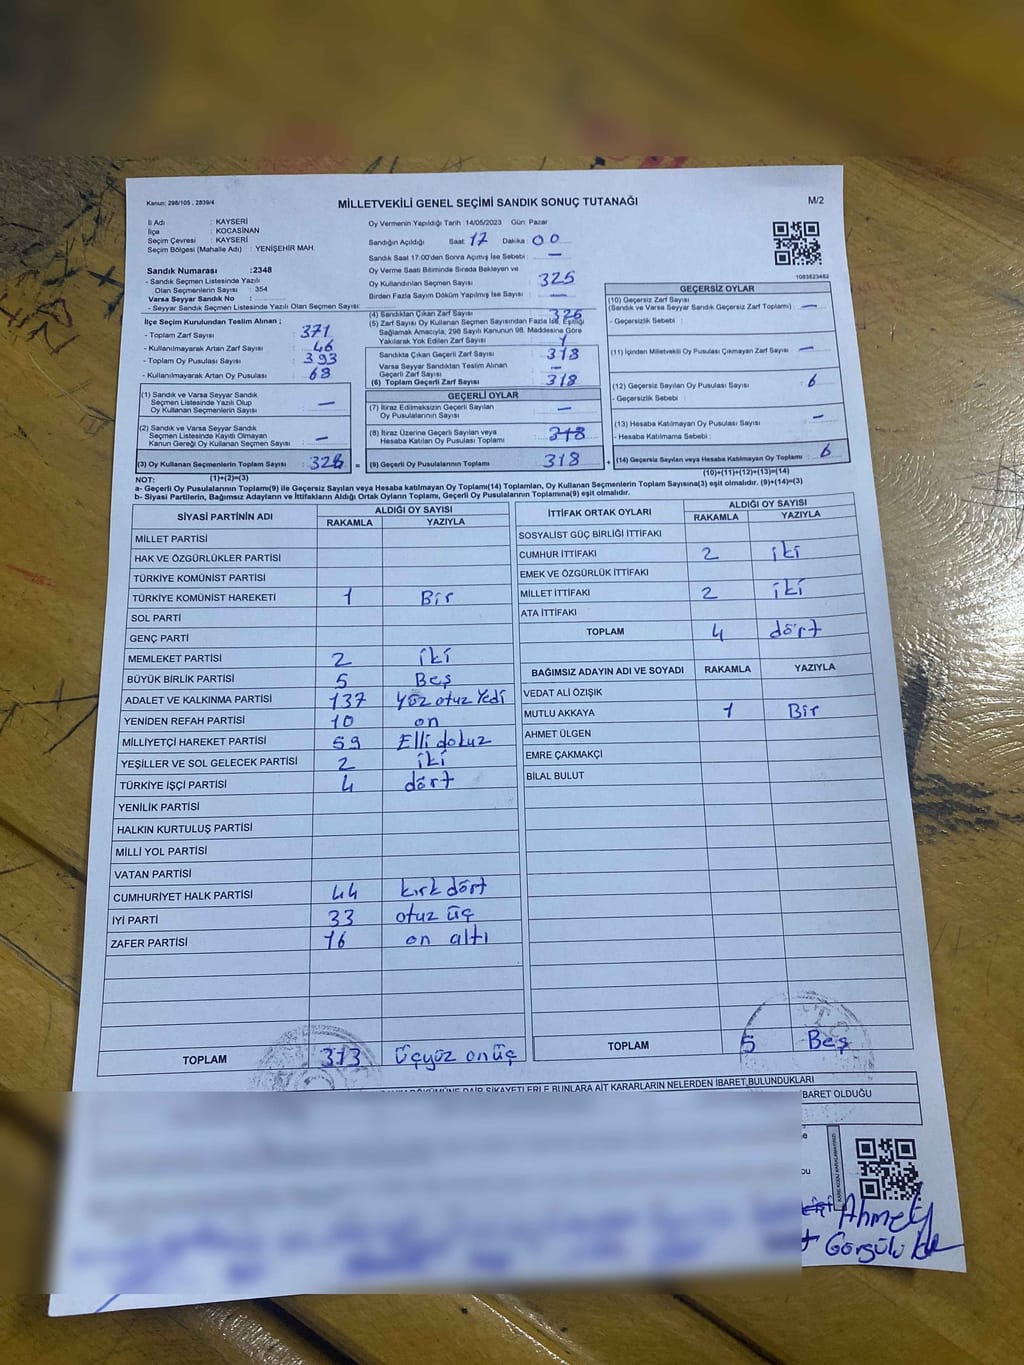 Kanun: 298/105 , 2839/4
MİLLETVEKİLİ GENEL SEÇİMİ SANDIK SONUÇ TUTANAĞI
M/2
İl Adı : KAYSERİ
İlçe : KOCASİNAN
Seçim Çevresi : KAYSERİ
Seçim Bölgesi (Mahalle Adı) : YENİŞEHİR MAH.
Sandık Numarası :2348
- Sandık Seçmen Listesinde Yazılı
Olan Seçmenlerin Sayısı : 354
Varsa Seyyar Sandık No :
- Seyyar Sandık Seçmen Listesinde Yazılı Olan Seçmen Sayısı:
İlçe Seçim Kurulundan Teslim Alınan ;
- Toplam Zarf Sayısı 371
- Kullanılmayarak Artan Zarf Sayısı 46
- Toplam Oy Pusulası Sayısı 393
- Kullanılmayarak Artan Oy Pusulası 68
(1) Sandık ve Varsa Seyyar Sandık
Seçmen Listesinde Yazılı Olup
Oy Kullanan Seçmenlerin Sayısı : —
(2) Sandık ve Varsa Seyyar Sandık
Seçmen Listesinde Kayıtlı Olmayan
Kanun Gereği Oy Kullanan Seçmen Sayısı : —
(3) Oy Kullanan Seçmenlerin Toplam Sayısı :
(1)+(2)=(3)
Oy Vermenin Yapıldığı Tarih : 14/05/2023 Gün: Pazar
Sandığın Açıldığı Saat: 17 Dakika : 00
Sandık Saat 17:00'den Sonra Açılmış İse Sebebi : —
Oy Verme Saati Bitiminde Sırada Bekleyen ve
Oy Kullandırılan Seçmen Sayısı : 325
Birden Fazla Sayım Döküm Yapılmış İse Sayısı : —
(4) Sandıktan Çıkan Zarf Sayısı :
(5) Zarf Sayısı Oy Kullanan Seçmen Sayısından Fazla İse, Eşitliği
Sağlamak Amacıyla; 298 Sayılı Kanunun 98. Maddesine Göre
Yakılarak Yok Edilen Zarf Sayısı :
Sandıkta Çıkan Geçerli Zarf Sayısı : 318
Varsa Seyyar Sandıktan Teslim Alınan
Geçerli Zarf Sayısı : —
(6) Toplam Geçerli Zarf Sayısı : 318
GEÇERLİ OYLAR
(7) İtiraz Edilmeksizin Geçerli Sayılan
Oy Pusulalarının Sayısı : —
(8) İtiraz Üzerine Geçerli Sayılan veya
Hesaba Katılan Oy Pusulası Toplamı : 318
= (9) Geçerli Oy Pusulalarının Toplamı : 318
1083623482
GEÇERSİZ OYLAR
(10) Geçersiz Zarf Sayısı
(Sandık ve Varsa Seyyar Sandık Geçersiz Zarf Toplamı) : —
- Geçersizlik Sebebi :
(11) İçinden Milletvekili Oy Pusulası Çıkmayan Zarf Sayısı : —
(12) Geçersiz Sayılan Oy Pusulası Sayısı : 6
- Geçersizlik Sebebi :
(13) Hesaba Katılmayan Oy Pusulası Sayısı : —
- Hesaba Katılmama Sebebi :
+ (14) Geçersiz Sayılan veya Hesaba Katılmayan Oy Toplamı : 6
(10)+(11)+(12)+(13)=(14)
NOT:
a- Geçerli Oy Pusulalarının Toplamı(9) ile Geçersiz Sayılan veya Hesaba katılmayan Oy Toplamı(14) Toplamları, Oy Kullanan Seçmenlerin Toplam Sayısına(3) eşit olmalıdır. (9)+(14)=(3)
b- Siyasi Partilerin, Bağımsız Adayların ve İttifakların Aldığı Ortak Oyların Toplamı, Geçerli Oy Pusulalarının Toplamına(9) eşit olmalıdır.
SİYASİ PARTİNİN ADI
ALDIĞI OY SAYISI
RAKAMLA YAZIYLA
MİLLET PARTİSİ
HAK VE ÖZGÜRLÜKLER PARTİSİ
TÜRKİYE KOMÜNİST PARTİSİ
TÜRKİYE KOMÜNİST HAREKETİ 1 Bir
SOL PARTİ
GENÇ PARTİ
MEMLEKET PARTİSİ 2 iki
BÜYÜK BİRLİK PARTİSİ 5 Beş
ADALET VE KALKINMA PARTİSİ 137 Yüz otuz Yedi
YENİDEN REFAH PARTİSİ 10 on
MİLLİYETÇİ HAREKET PARTİSİ 59 Elli dokuz
YEŞİLLER VE SOL GELECEK PARTİSİ 2 iki
TÜRKİYE İŞÇİ PARTİSİ 4 dört
YENİLİK PARTİSİ
HALKIN KURTULUŞ PARTİSİ
MİLLİ YOL PARTİSİ
VATAN PARTİSİ
CUMHURİYET HALK PARTİSİ 44 kırk dört
İYİ PARTİ 33 otuz üç
ZAFER PARTİSİ 16 on altı
TOPLAM 313 üçyüz onüç
İTTİFAK ORTAK OYLARI
ALDIĞI OY SAYISI
RAKAMLA YAZIYLA
SOSYALİST GÜÇ BİRLİĞİ İTTİFAKI
CUMHUR İTTİFAKI 2 iki
EMEK VE ÖZGÜRLÜK İTTİFAKI
MİLLET İTTİFAKI 2 iki
ATA İTTİFAKI
TOPLAM 4 dört
BAĞIMSIZ ADAYIN ADI VE SOYADI RAKAMLA YAZIYLA
VEDAT ALİ ÖZIŞIK
MUTLU AKKAYA 1 Bir
AHMET ÜLGEN
EMRE ÇAKMAKÇİ
BİLAL BULUT
TOPLAM 5 Beş
DÖKÜMÜNE DAİR ŞİKAYETLER İLE BUNLARA AİT KARARLARIN NELERDEN İBARET BULUNDUKLARI
BARET OLDUĞU
Ahmet
Görgülü